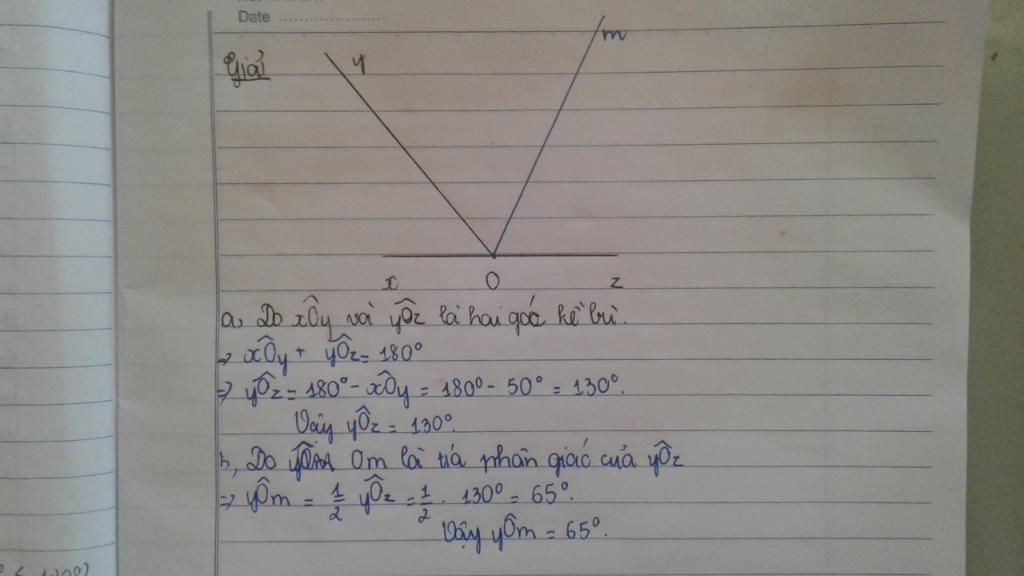 Date
Giải
y
m
x O z
a, Do xÔy và yÔz là hai góc kề bù.
⇒ xÔy + yÔz = 180°
⇒ yÔz = 180° - xÔy = 180° - 50° = 130°.
Vậy yÔz = 130°.
b, Do Om là tia phân giác của yÔz
⇒ yÔm = 1/2 yÔz = 1/2 . 130° = 65°.
Vậy yÔm = 65°.